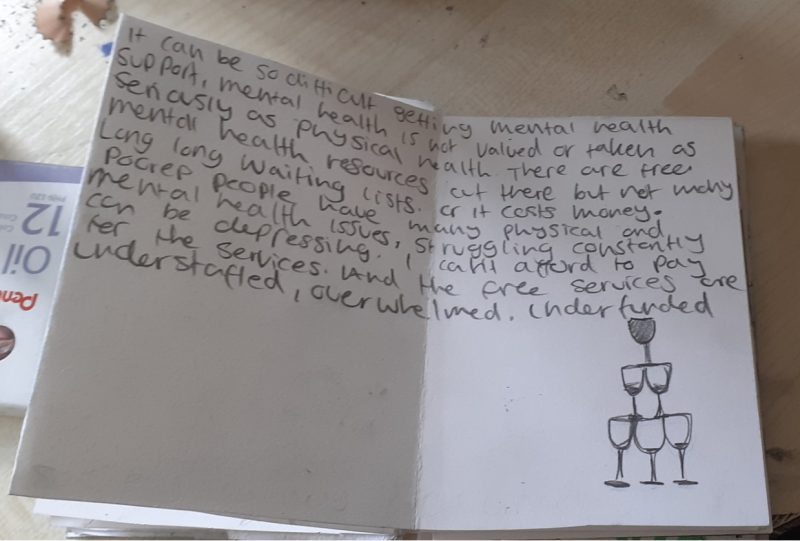 It can be so difficult getting mental health
support, mental health is not valued or taken as
seriously as physical health. There are free
mental health resources out there but not many
Long long waiting lists. or it costs money.
Poorer people have many physical and
mental health issues, struggling constantly
can be depressing. I can't afford to pay
for the services. And the free services are
understaffed, overwhelmed. Underfunded
12
Oil